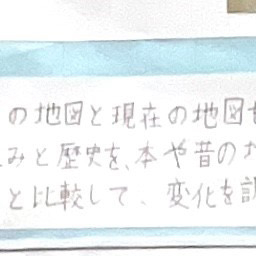 の地図と現在の地図を
みと歴史を、本や昔の
と比較して、変化を調